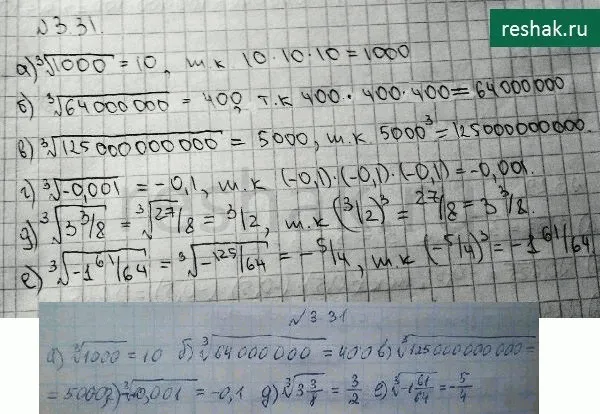 №3.31.
reshak.ru
а) ∛1000 = 10, т.к 10·10·10=1000
б) ∛64000000 = 400, т.к 400·400·400=64000000
в) ∛125000000000 = 5000, т.к 5000³=125000000000.
г) ∛-0,001 = -0,1, т.к (-0,1)·(-0,1)·(-0,1)=-0,001.
д) ∛3 3/8 = ∛27/8 = 3/2, т.к (3/2)³ = 27/8 = 3 3/8.
е) ∛-1 61/64 = ∛-125/64 = -5/4, т.к (-5/4)³ = -1 61/64
№3.31
а) ∛1000 = 10 б) ∛64000000 = 400 в) ∛125000000000 =
= 5000 г) ∛-0,001 = -0,1 д) ∛3 3/8 = 3/2 е) ∛-1 61/64 = -5/4